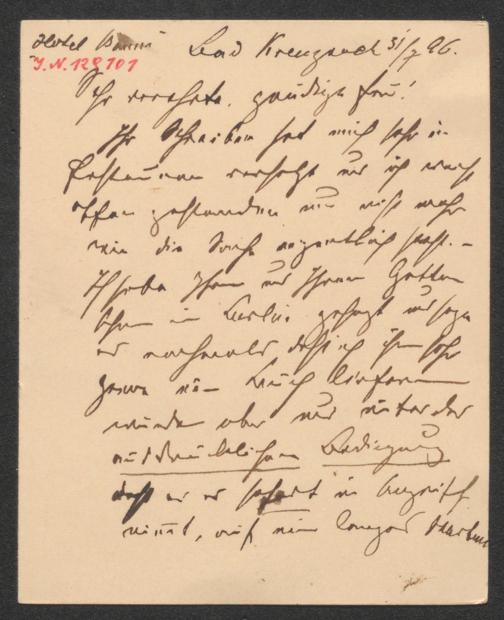 Hotel
Bad Kreuznach 31/7 96.
I.N. 129101
Sehr verehrte, gnädige Frau!
Ihr Schreiben hat mich sehr in
Erstaunen versetzt und ich weiß
offen gestanden nun nicht mehr
wie die Sache eigentlich steht. –
Ich habe Ihnen und Ihrem Gatten
schon in Berlin gesagt und sage
es nochmals daß ich ihm sehr
gerne ein Buch liefern
würde aber nur unter der
ausdrücklichen Bedingung
daß er es sofort in Angriff
nimmt, auf ein langes Warten